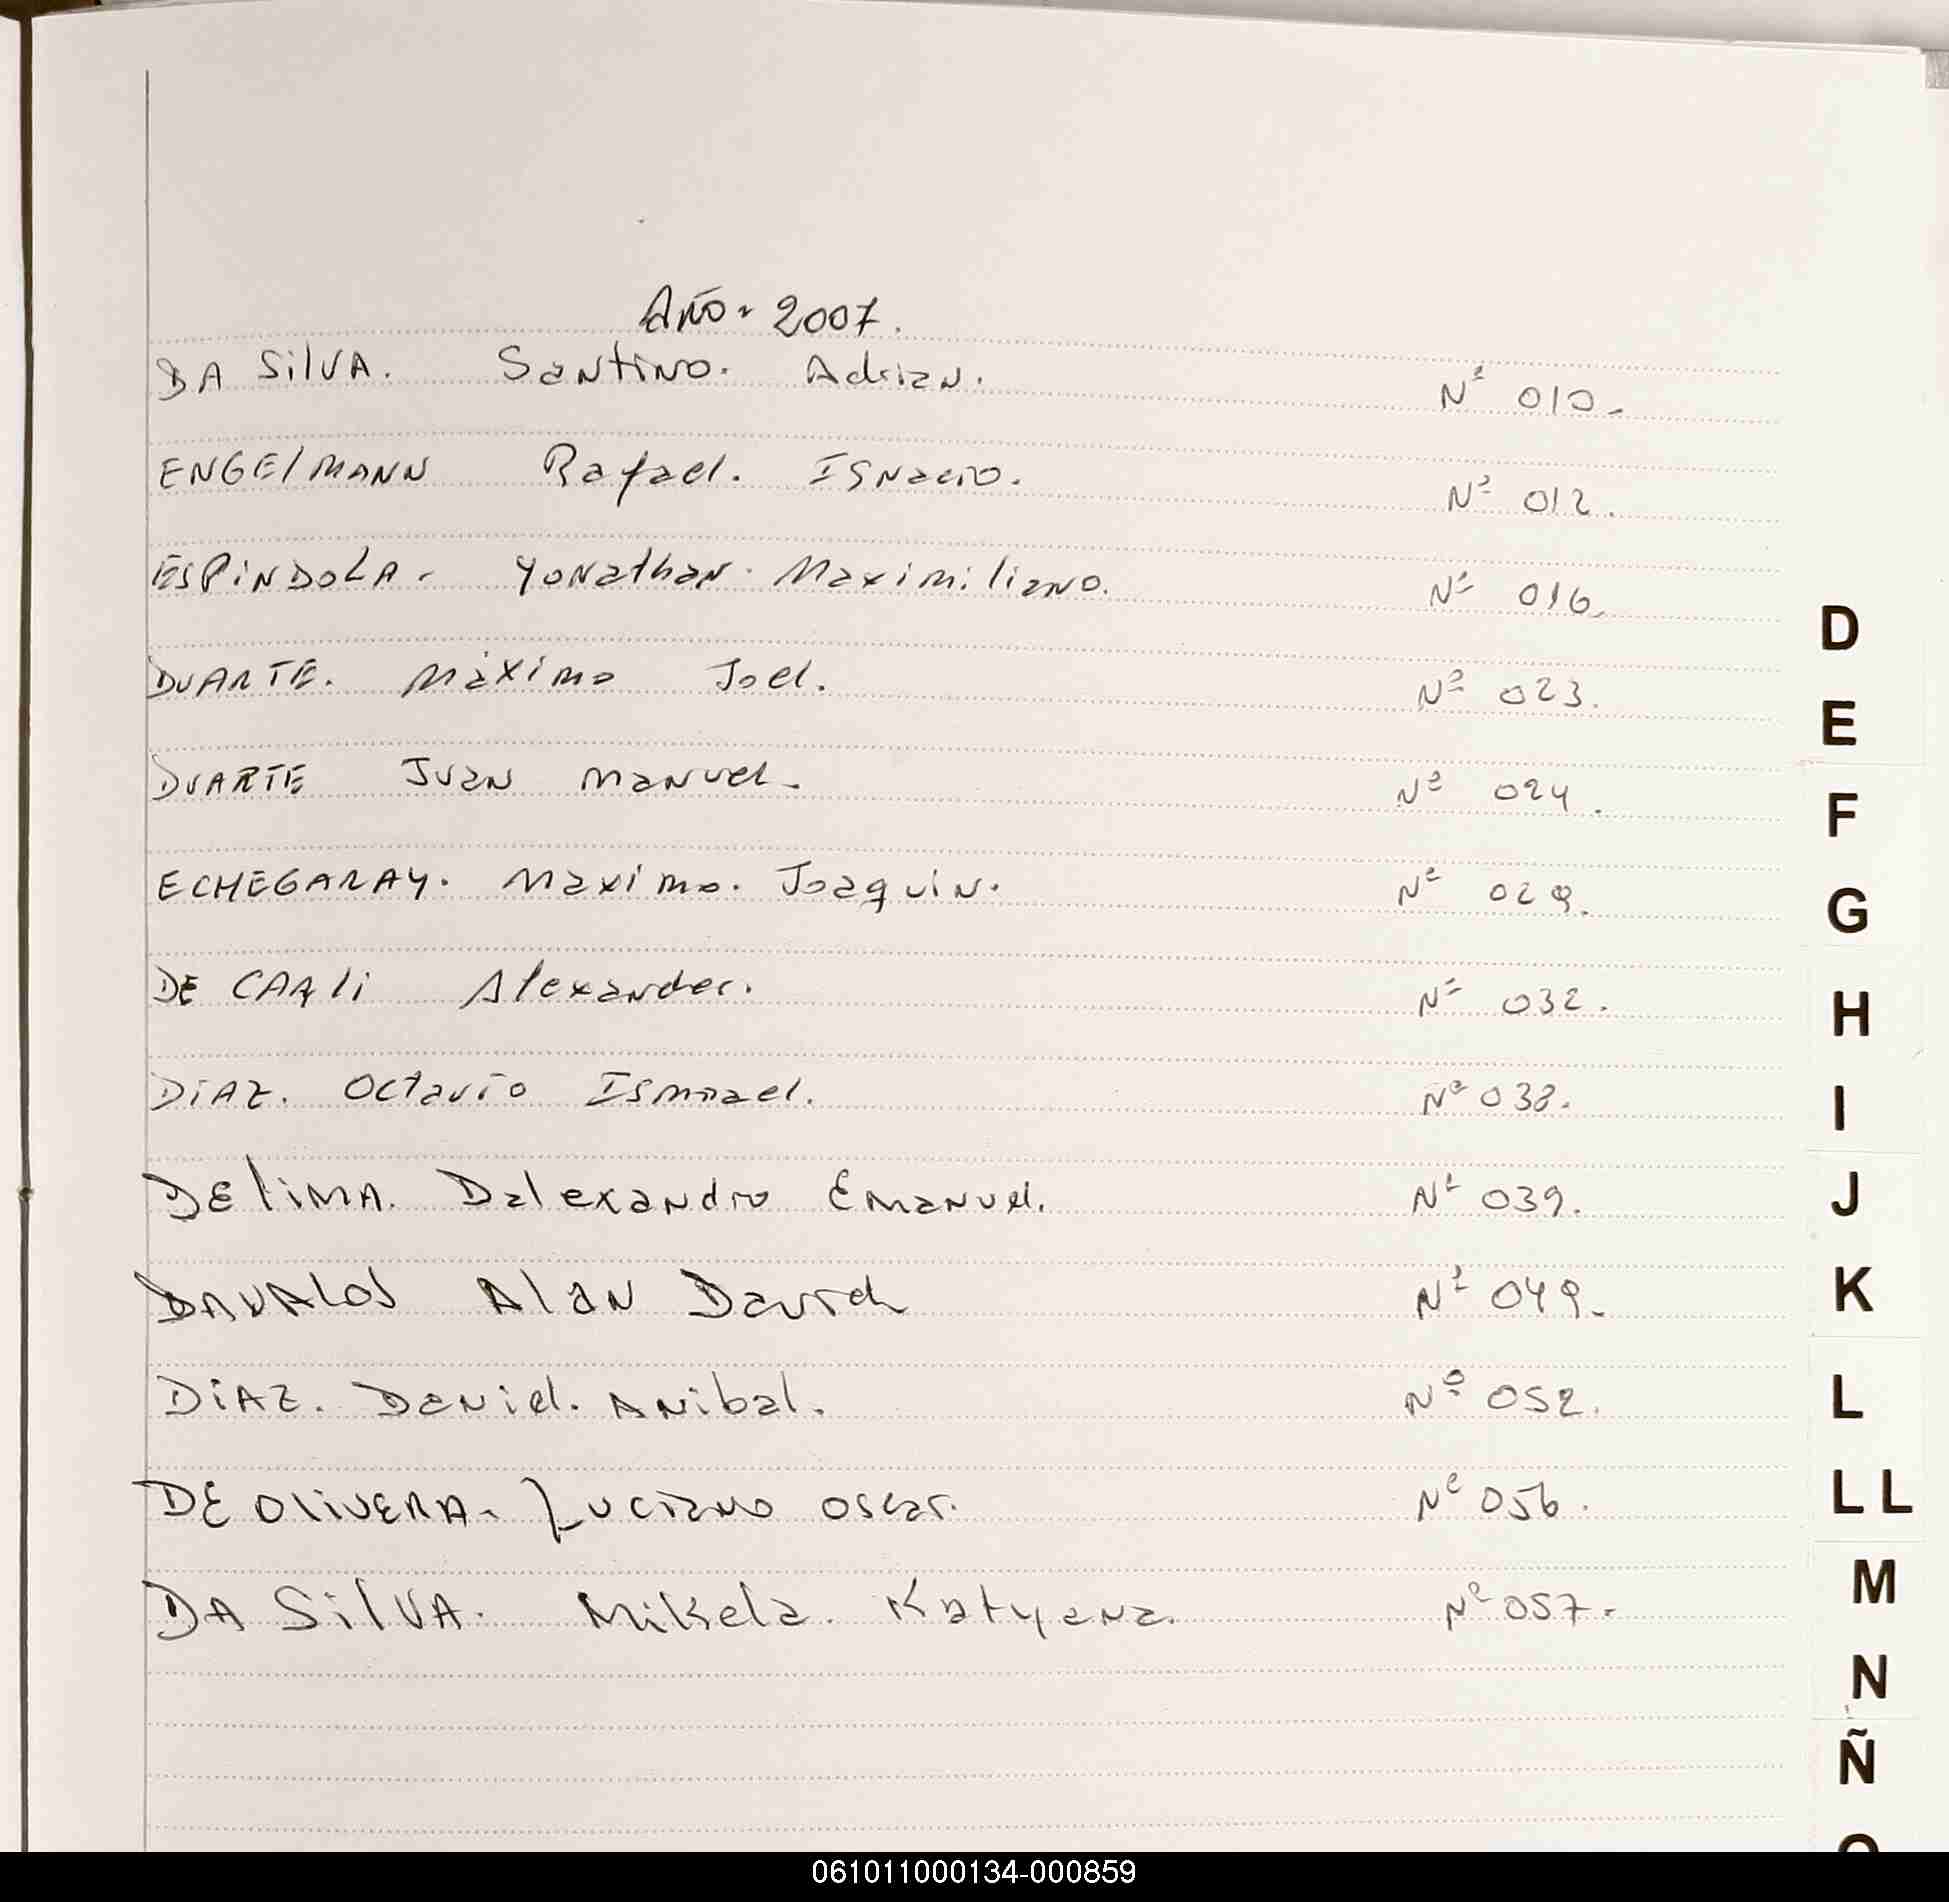 Año - 2007.
DA SilVA. Santino. Adrian. Nº 010.
ENGElMANN Rafael. Ignacio. Nº 012.
ESPINDOLA - Yonathan. Maximiliano. Nº 016.
DUARTE. Máximo Joel. Nº 023.
DUARTE Juan Manuel. Nº 024.
ECHEGARAY. Maximo. Joaquin. Nº 029.
DE CARli Alexander. Nº 032.
DiAZ. Octavio Ismael. Nº 038.
DElimA. Dalexandro Emanuel. Nº 039.
DAVAlOS Alan David Nº 049.
DiAZ. Daniel. Anibal. Nº 052.
DE OliVERA - Luciano Oscar. Nº 056.
DA SilVA. Mikela. Katyana. Nº 057.
D
E
F
G
H
I
J
K
L
LL
M
N
Ñ
061011000134-000859